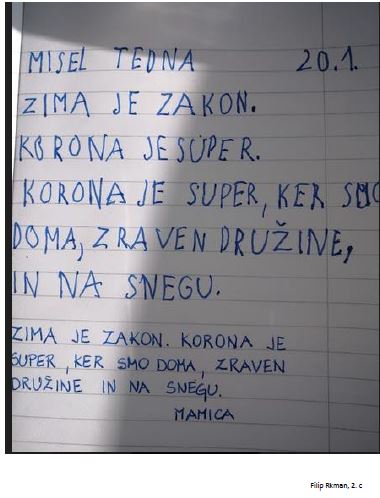 MISEL TEDNA 20.1.
ZIMA JE ZAKON.
KORONA JE SUPER.
KORONA JE SUPER, KER SMO
DOMA, ZRAVEN DRUŽINE,
IN NA SNEGU.
ZIMA JE ZAKON. KORONA JE
SUPER, KER SMO DOMA, ZRAVEN
DRUŽINE IN NA SNEGU.
MAMICA
Filip Rkman, 2. c